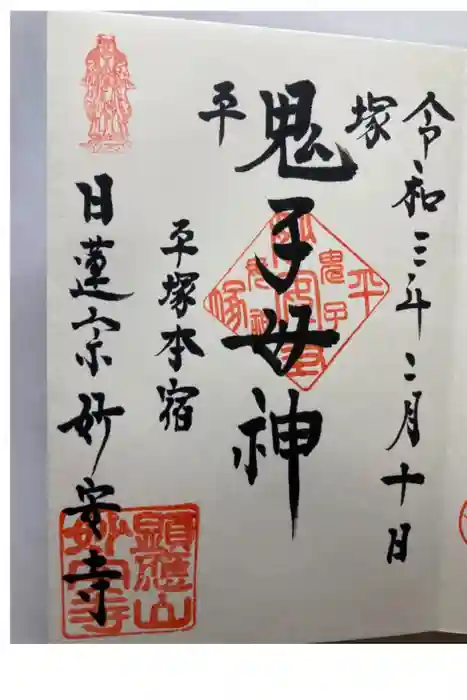 令和三年二月十日
平塚
鬼子母神
平塚本宿
日蓮宗妙安寺
平
塚
鬼子
顯應山
妙安寺